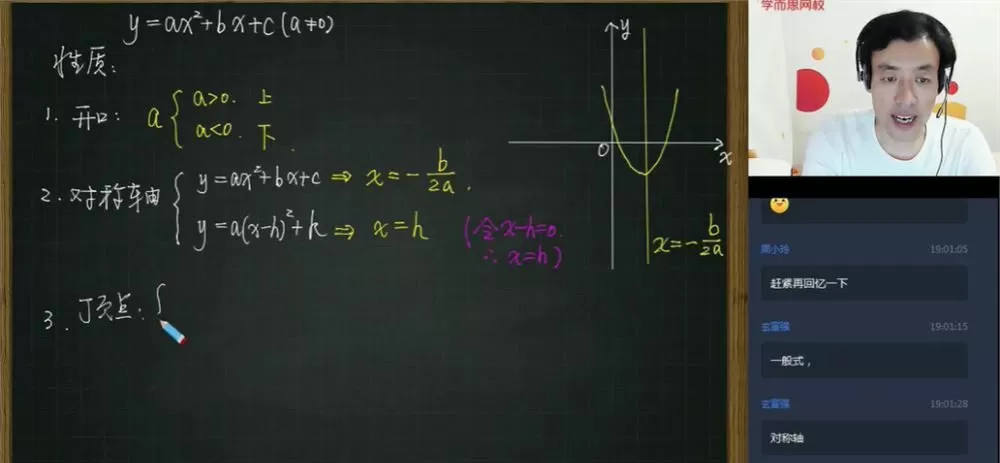 y=ax²+bx+c(a≠0)
性质:
1. 开口: a { a>0. 上
a<0. 下.
2. 对称轴 { y=ax²+bx+c ⇒ x=-b/2a.
y=a(x-h)²+k ⇒ x=h (令x-h=0.
∴ x=h)
3. 顶点: {
y
O
x
x=-b/2a
学而思网校
周小玲 19:01:05
赶紧再回忆一下
玄富强 19:01:15
一般式，
玄富强 19:01:28
对称轴